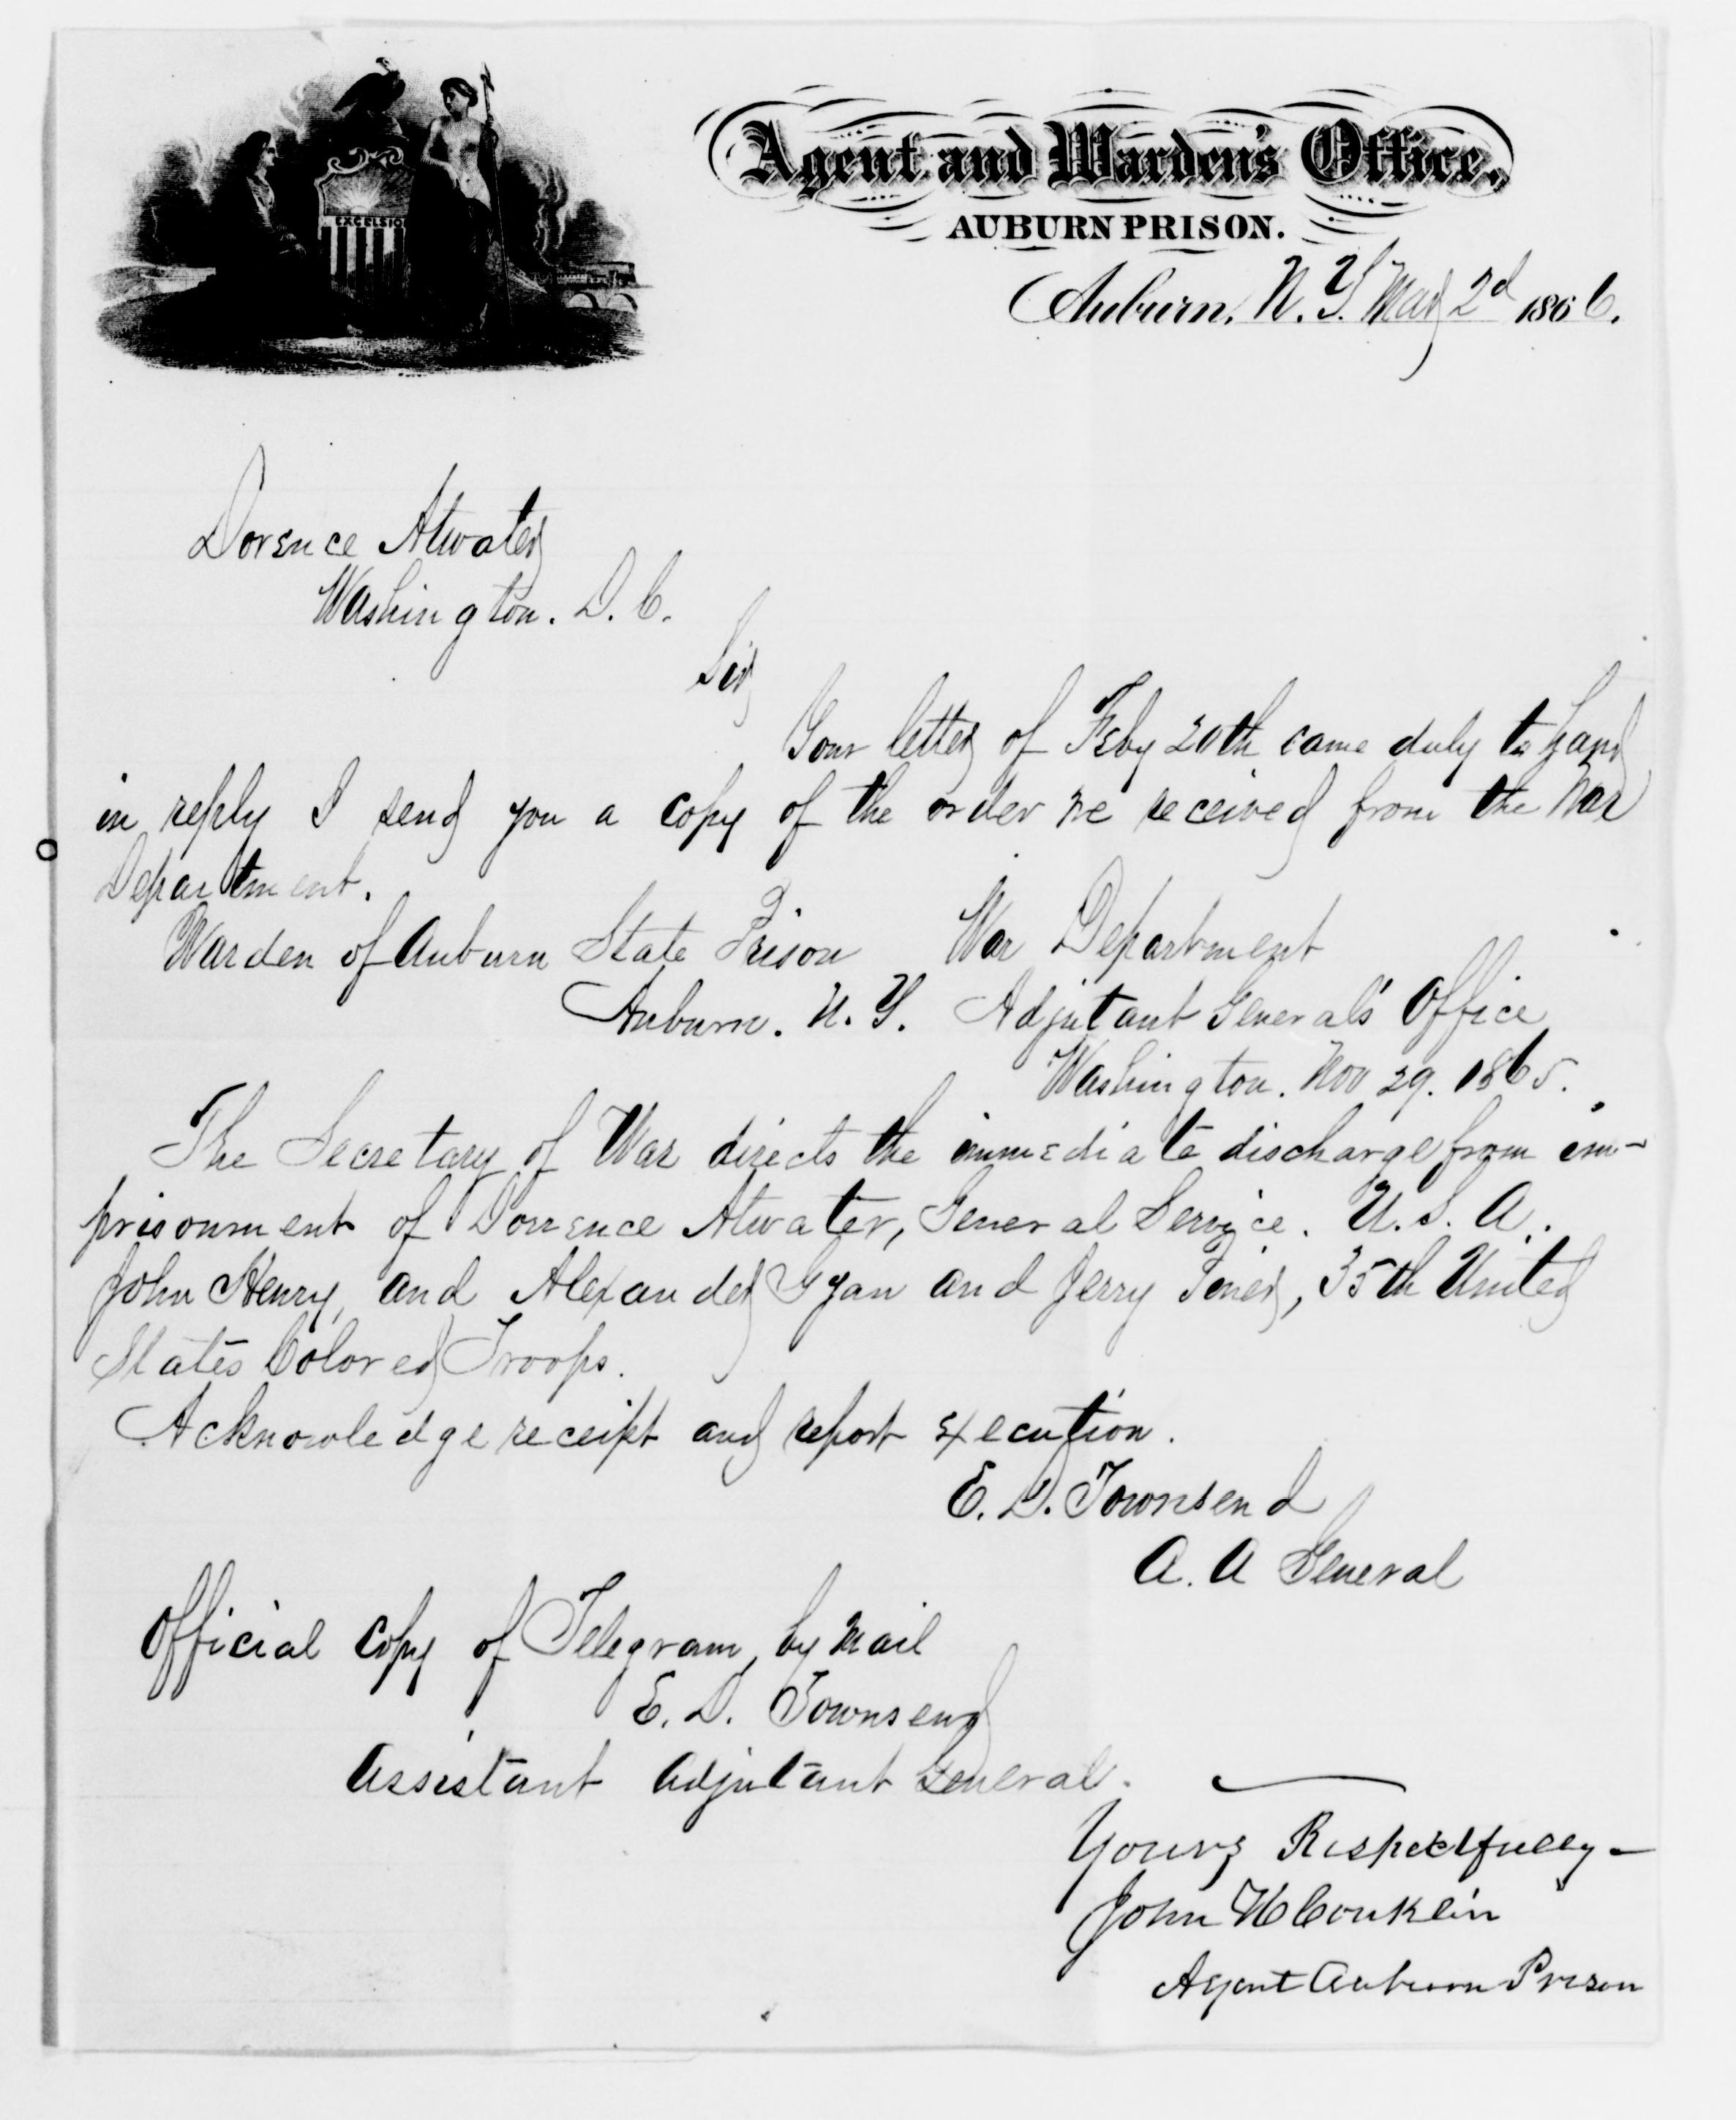 EXCELSIO
Agent and Warden's Office,
AUBURN PRISON.
Auburn, N. Y. Mar 2d 1866.
Dorence Atwater
Washington. D. C.
Sir
Your letter of Feby 20th came duly to hand
in reply I send you a copy of the order we received from the War
Department.
Warden of Auburn State Prison War Department
Auburn. N. Y. Adjutant General's Office
Washington. Nov 29. 1865.
The Secretary of War directs the immediate discharge from im-
prisonment of Dorrence Atwater, General Service. U. S. A.
John Henry, and Alexander and Jerry, 35th United
States Colored Troops.
Acknowledge receipt and report execution.
E. D. Townsend
A. A General
Official copy of Telegram, by mail
E. D. Townsend
Assistant Adjutant General.
Yours Respectfully -
John H Conklin
Agent Auburn Prison